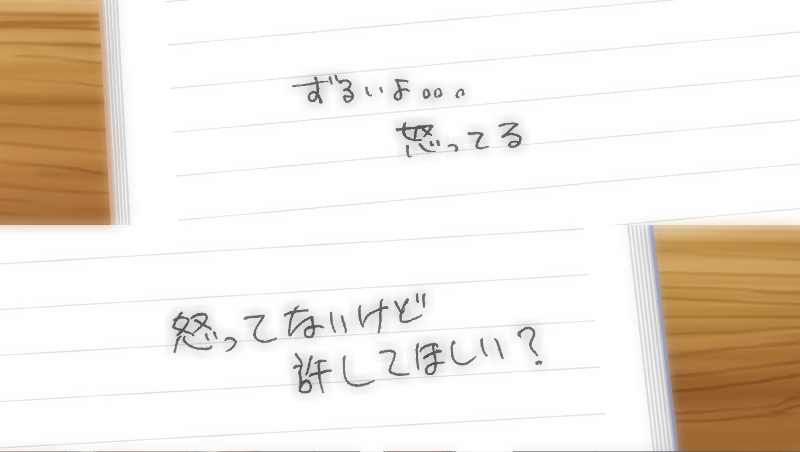 ずるいよ。。。
怒ってる
怒ってないけど
許してほしい?